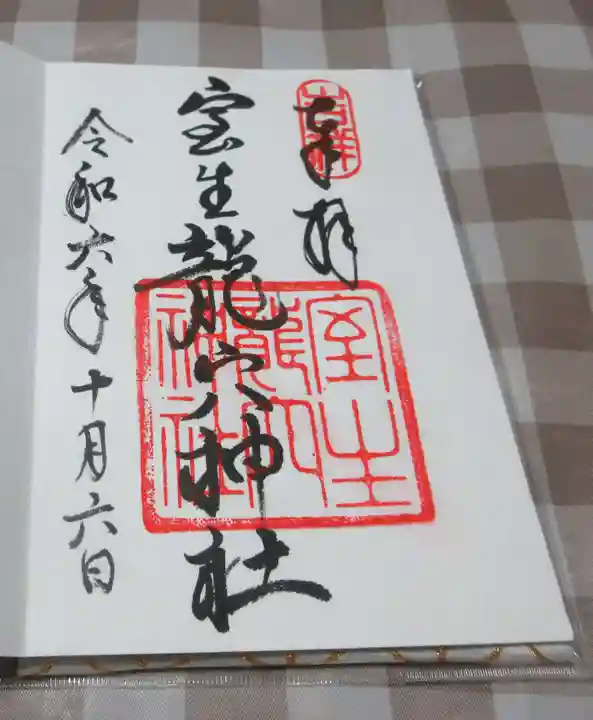 奉拝
室生龍穴神社
室生
龍穴
神社
令和六年十月六日